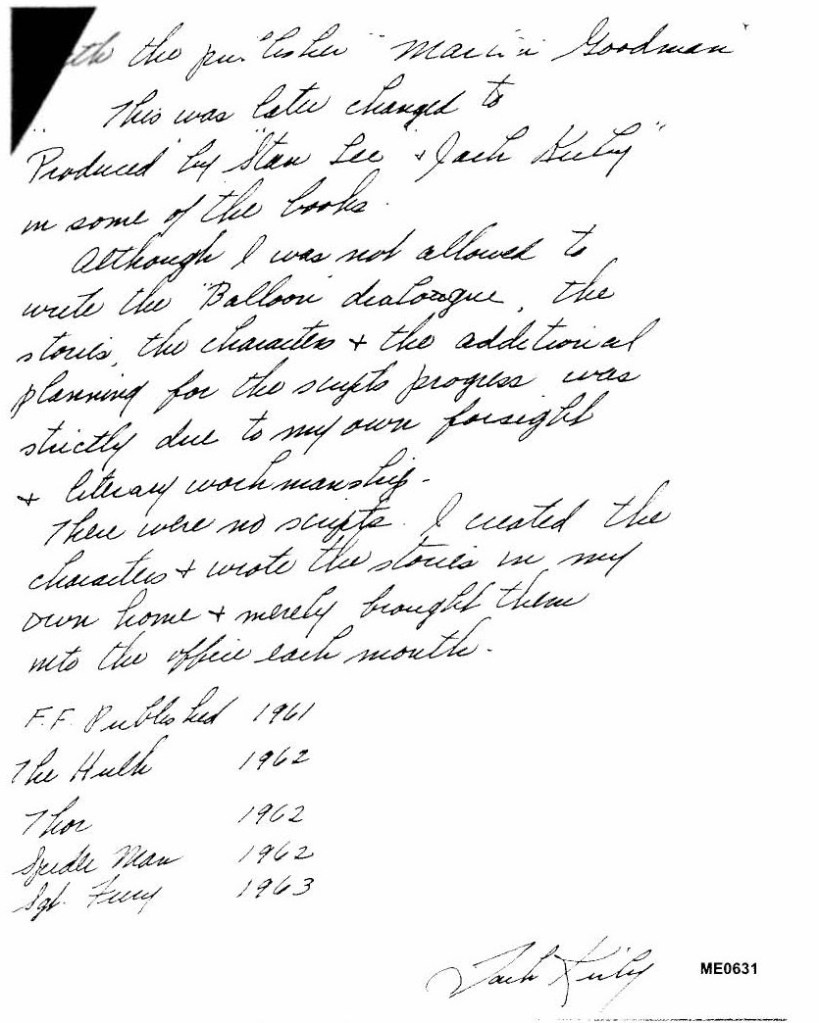 the publisher "Martin Goodman"
This was later changed to
"Produced by "Stan Lee & Jack Kirby"
in some of the books.
Although I was not allowed to
write the "Balloon" dialougue, the
stories, the characters + the additional
planning for the scripts progress was
strictly due to my own forsight
+ literary workmanship.
There were no scripts. I created the
characters + wrote the stories in my
own home + merely brought them
into the office each month.
F.F. Published 1961
The Hulk 1962
Thor 1962
Spider Man 1962
Sgt. Fury 1963
Jack Kirby
ME0631